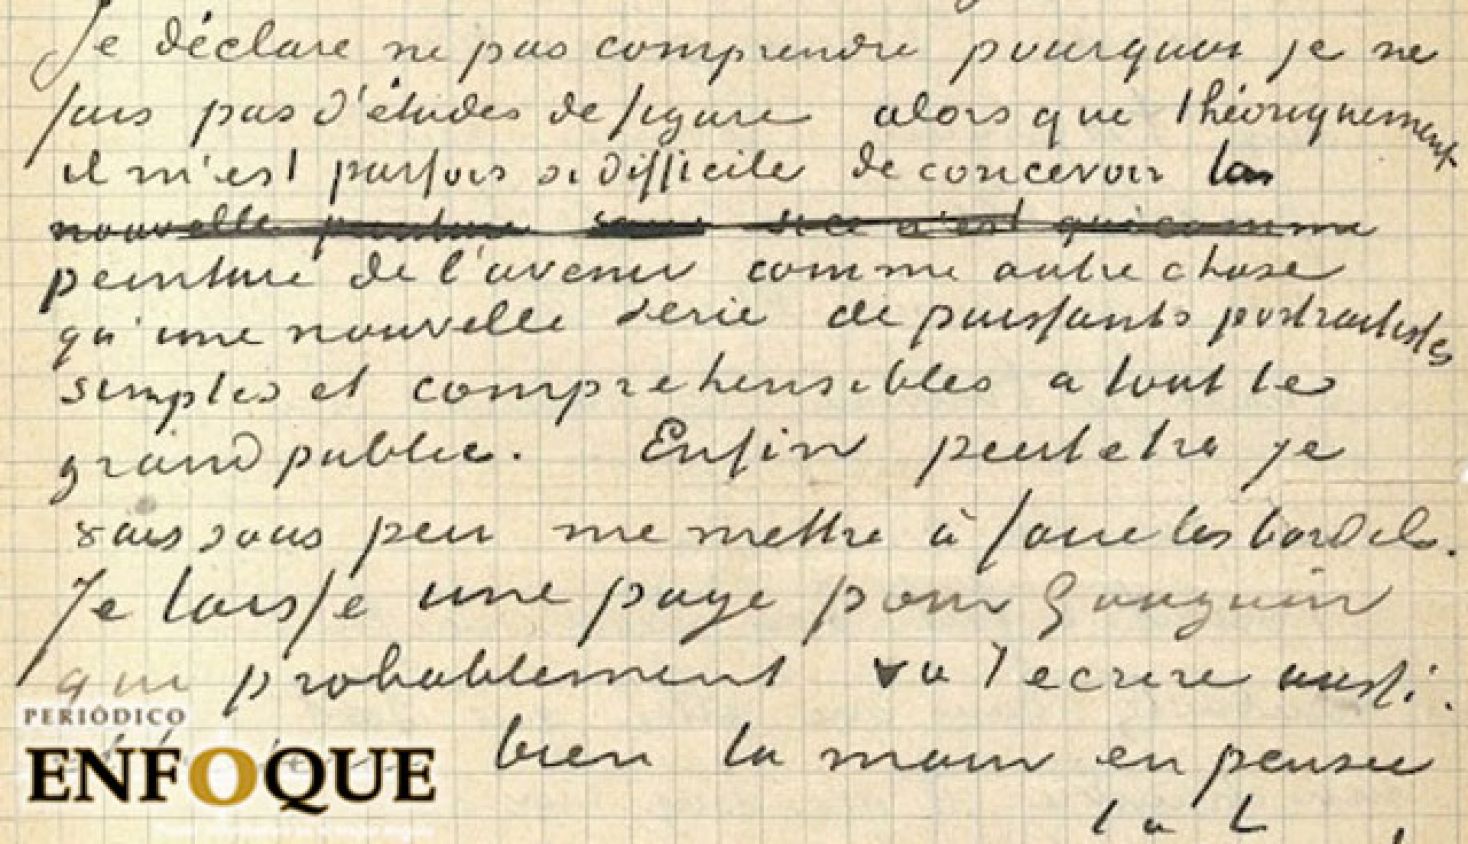 Je déclare ne pas comprendre pourquoi je ne
fais pas d'études de figure alors que théoriquement
il m'est parfois si difficile de concevoir la
nouvelle peinture si ce n'est que comme
peinture de l'avenir comme autre chose
qu'une nouvelle serie de puissants portraitistes
simples et comprehensibles a tout le
grand public. Enfin peutetre je
vais sous peu me mettre à faire les bordels.
Je laisse une page pour Gauguin
qui probablement va t'ecrire aussi.
PERIÓDICO
ENFOQUE
bien la main en pensee